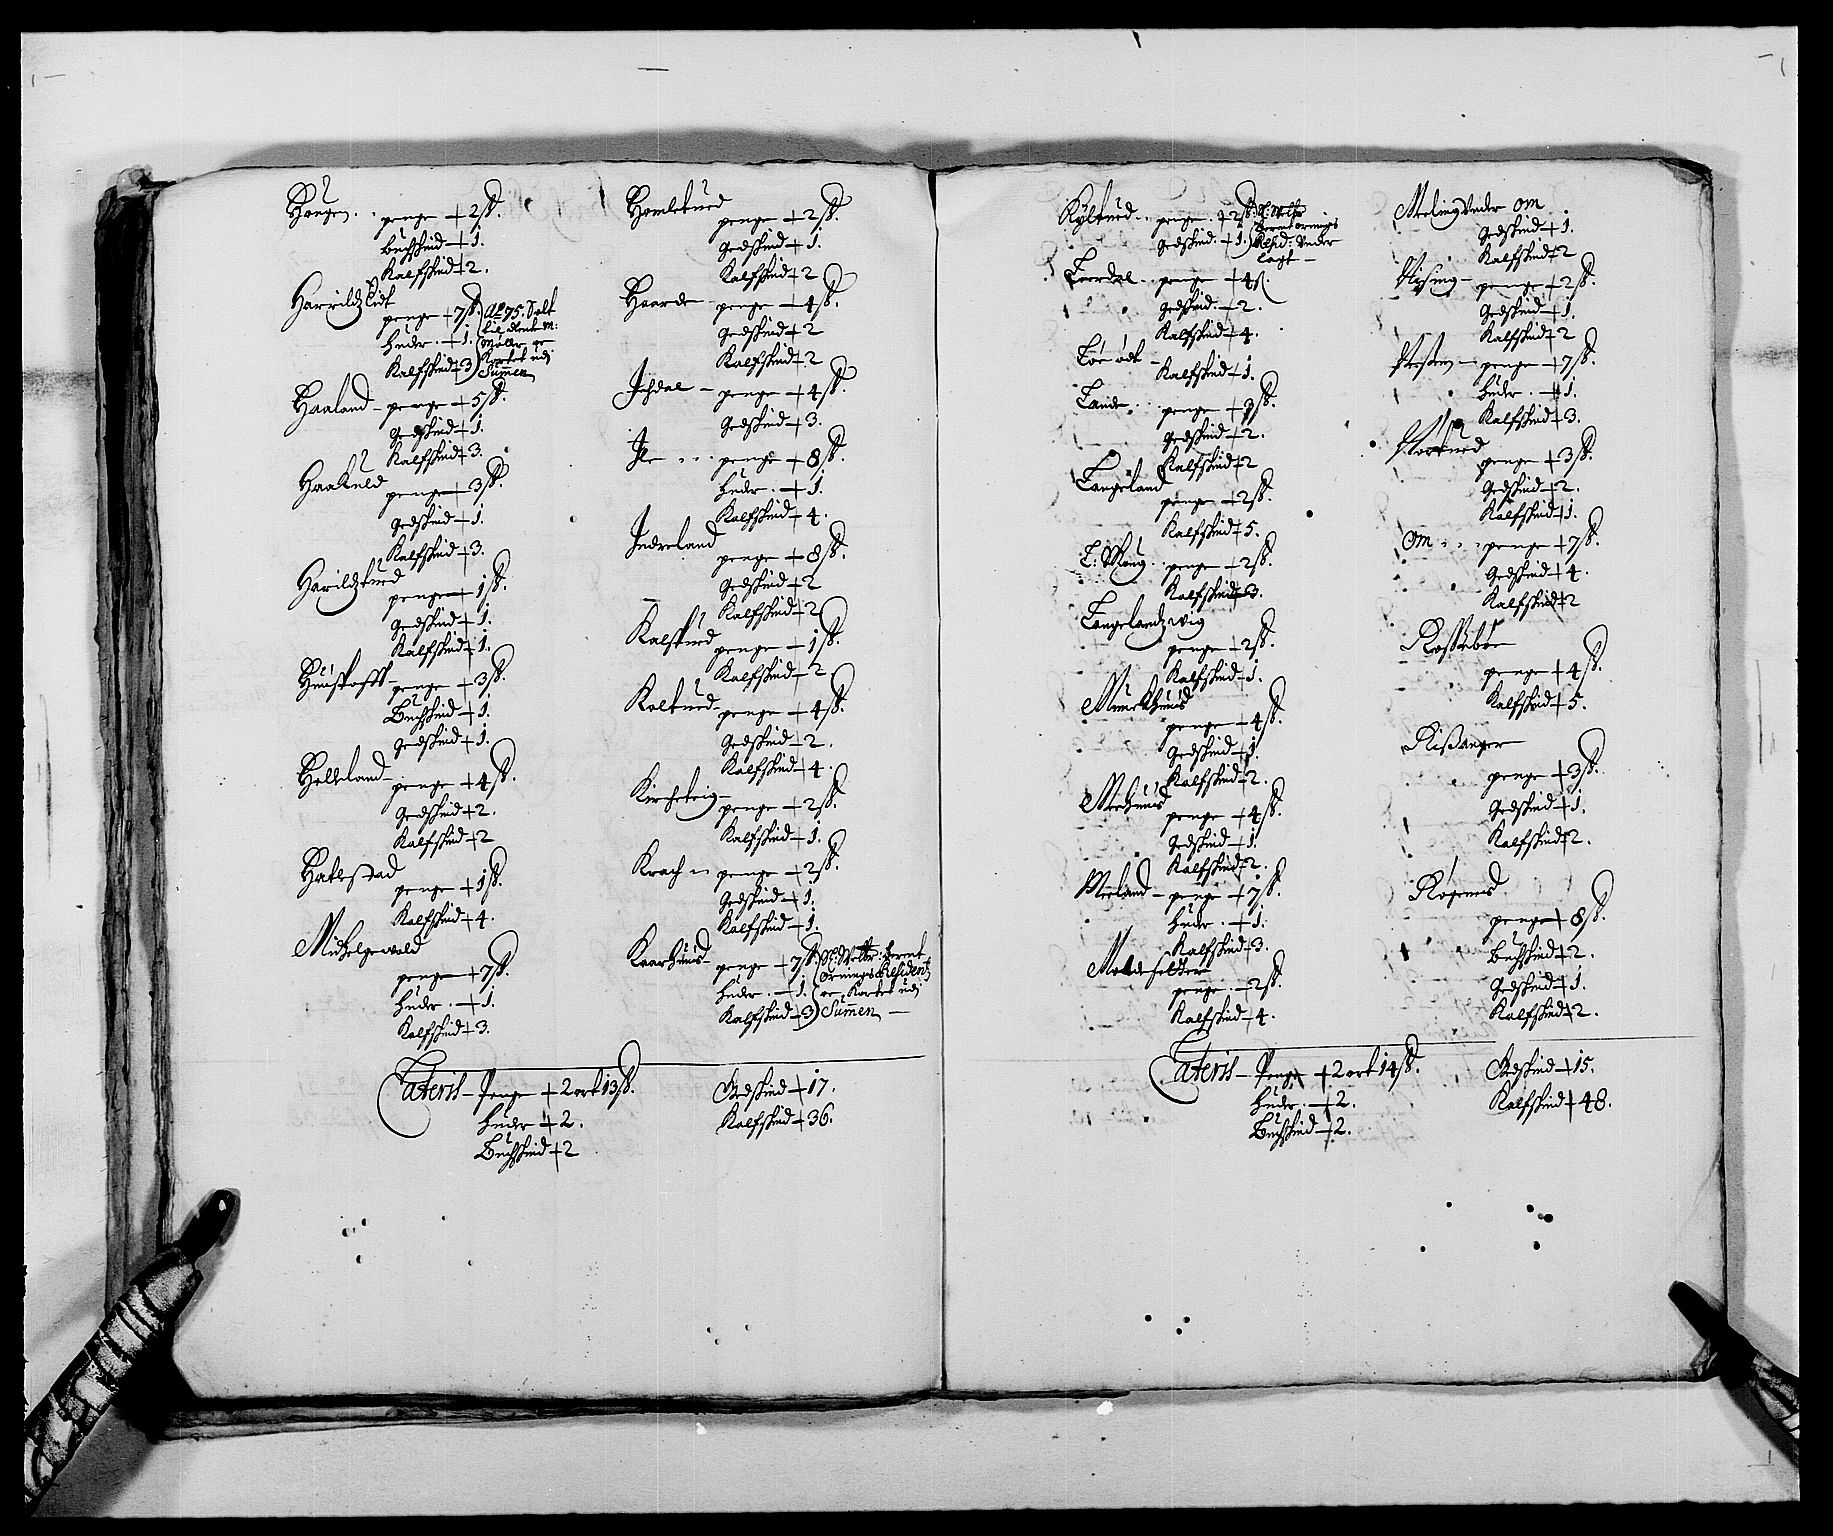 Haugen .. penge + 2ß.
Buchskind + 1.
Kalfskind + 2.
Harrildzlidt
penge + 7ß. Ao 75. Solt
huder . + 1. til
Kalfskind + 3 Kortet udi
Summen
Haaland - penge + 5ß.
Gedskind + 1.
Kalfskind + 3.
Haakuld
penge + 3ß.
Gedskind + 1.
Kalfskind + 3.
Harildztued
penge + 1ß.
Gedskind + 1.
Kalfskind + 1.
Huustofft -
penge + 3ß.
Buchskind + 1.
Gedskind + 1.
Helleland -
penge + 4ß.
Gedskind + 2.
Kalfskind + 2
Hatlestad
penge + 1ß.
Kalfskind + 4.
Michelgewald
penge + 7ß.
huder . + 1.
Kalfskind + 3.
Homletued
penge + 2ß.
Gedskind + 1.
Kalfskind + 2
Haarde - penge + 4ß.
Gedskind + 2
Kalfskind + 2
Ichdal - penge + 4ß.
Gedskind + 3.
Ile ... penge + 8ß.
huder . + 1.
Kalfskind + 4.
Indreland
penge + 8ß.
Gedskind + 2
Kalfskind + 2
Kalstued
penge + 1ß.
Kalfskind + 2
Koltued -
penge + 4ß.
Gedskind + 2.
Kalfskind + 4.
Kircheteig -
penge + 2ß.
Kalfskind + 1.
Krach .. penge + 2ß.
Gedskind + 1.
Kalfskind + 1.
Kaarhuus -
penge + 7ß.
huder . + 1. er Kortet udj
Kalfskind + 3 Summen
Lateris - Penge + 2 ort 13ß.
huder + 2.
Buchskind + 2
Gedskind + 17.
Kalfskind + 36.
Kyltued .. penge + 2ß.
Gedskind + 1. Resid: under
lagt -
Leerdal .. penge + 4ß.
Gedskind + 2.
Kalfskind + 4.
Kalfskind + 1.
Lande .. penge + 3ß.
Gedskind + 2.
Kalfskind + 2
Langeland
penge + 2ß.
Kalfskind + 5.
penge + 2ß.
Kalfskind + 3.
Langelandz wig
penge + 2ß.
Kalfskind + 1.
Munckhuus
penge + 4ß.
Gedskind + 1.
Kalfskind + 2.
Mehuus
penge + 4ß.
Gedskind + 1.
Kalfskind + 2.
Meeland - penge + 7ß.
huder . + 1.
Kalfskind + 3.
penge + 2ß.
Kalfskind + 4.
Meling under Om
Gedskind + 1.
Kalfskind + 2
penge + 2ß.
Gedskind + 1.
Kalfskind + 2
penge + 7ß.
huder . + 1.
Kalfskind + 3.
penge + 3ß.
Gedskind + 2.
Kalfskind + 1.
Om ... penge + 7ß.
Gedskind + 4.
Kalfskind + 2
Rossebøe
penge + 4ß.
Kalfskind + 5.
Rißanger
penge + 3ß.
Gedskind + 1.
Kalfskind + 2.
Røgenes
penge + 8ß.
Buchskind + 2.
Gedskind + 1.
Kalfskind + 2.
Lateris - Penge + 2 ort 14ß.
huder . + 2.
Buchskind + 2.
Gedskind + 15.
Kalfskind + 48.